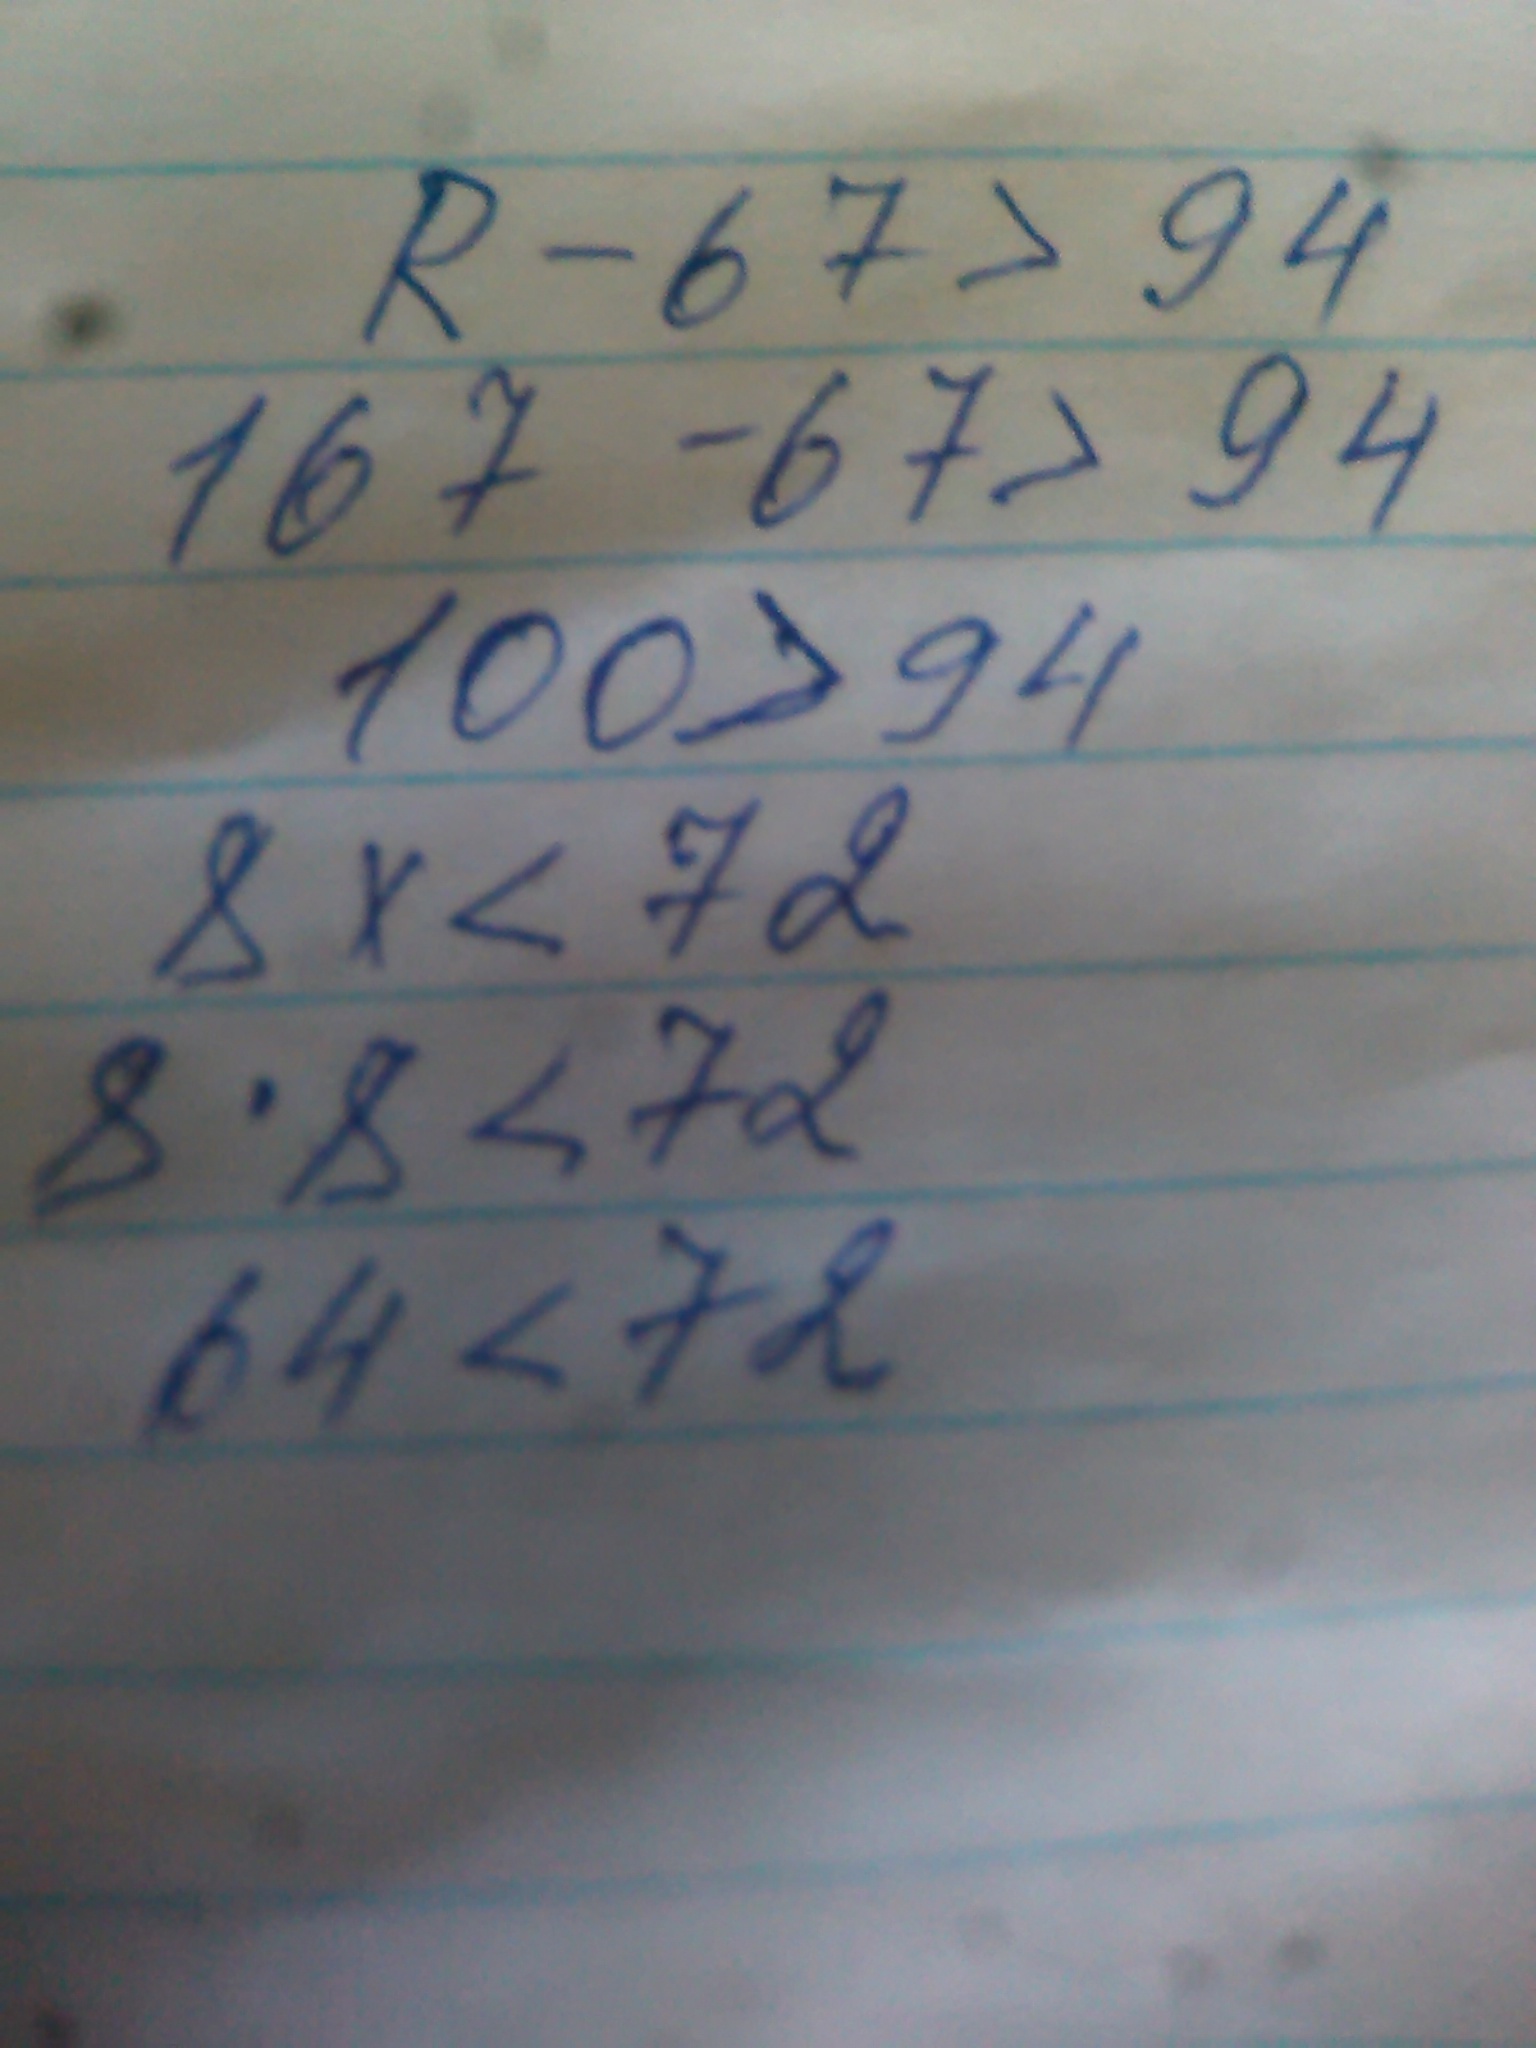 R - 67 > 94
167 - 67 > 94
100 > 94
8x < 72
8 · 8 < 72
64 < 72